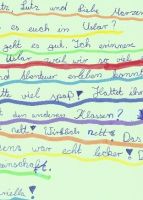 Lutz und liebe Marzen
es euch in Uslar?
geht es gut. Ich erinnere
Uslar weil wir so viel
und Abenteuer erleben konnt
tte viel spaß! Hattet ih
den anderen Klassen?
nett! Wirklich nett! Das
ens war echt lecker!
enschaft.
niella!